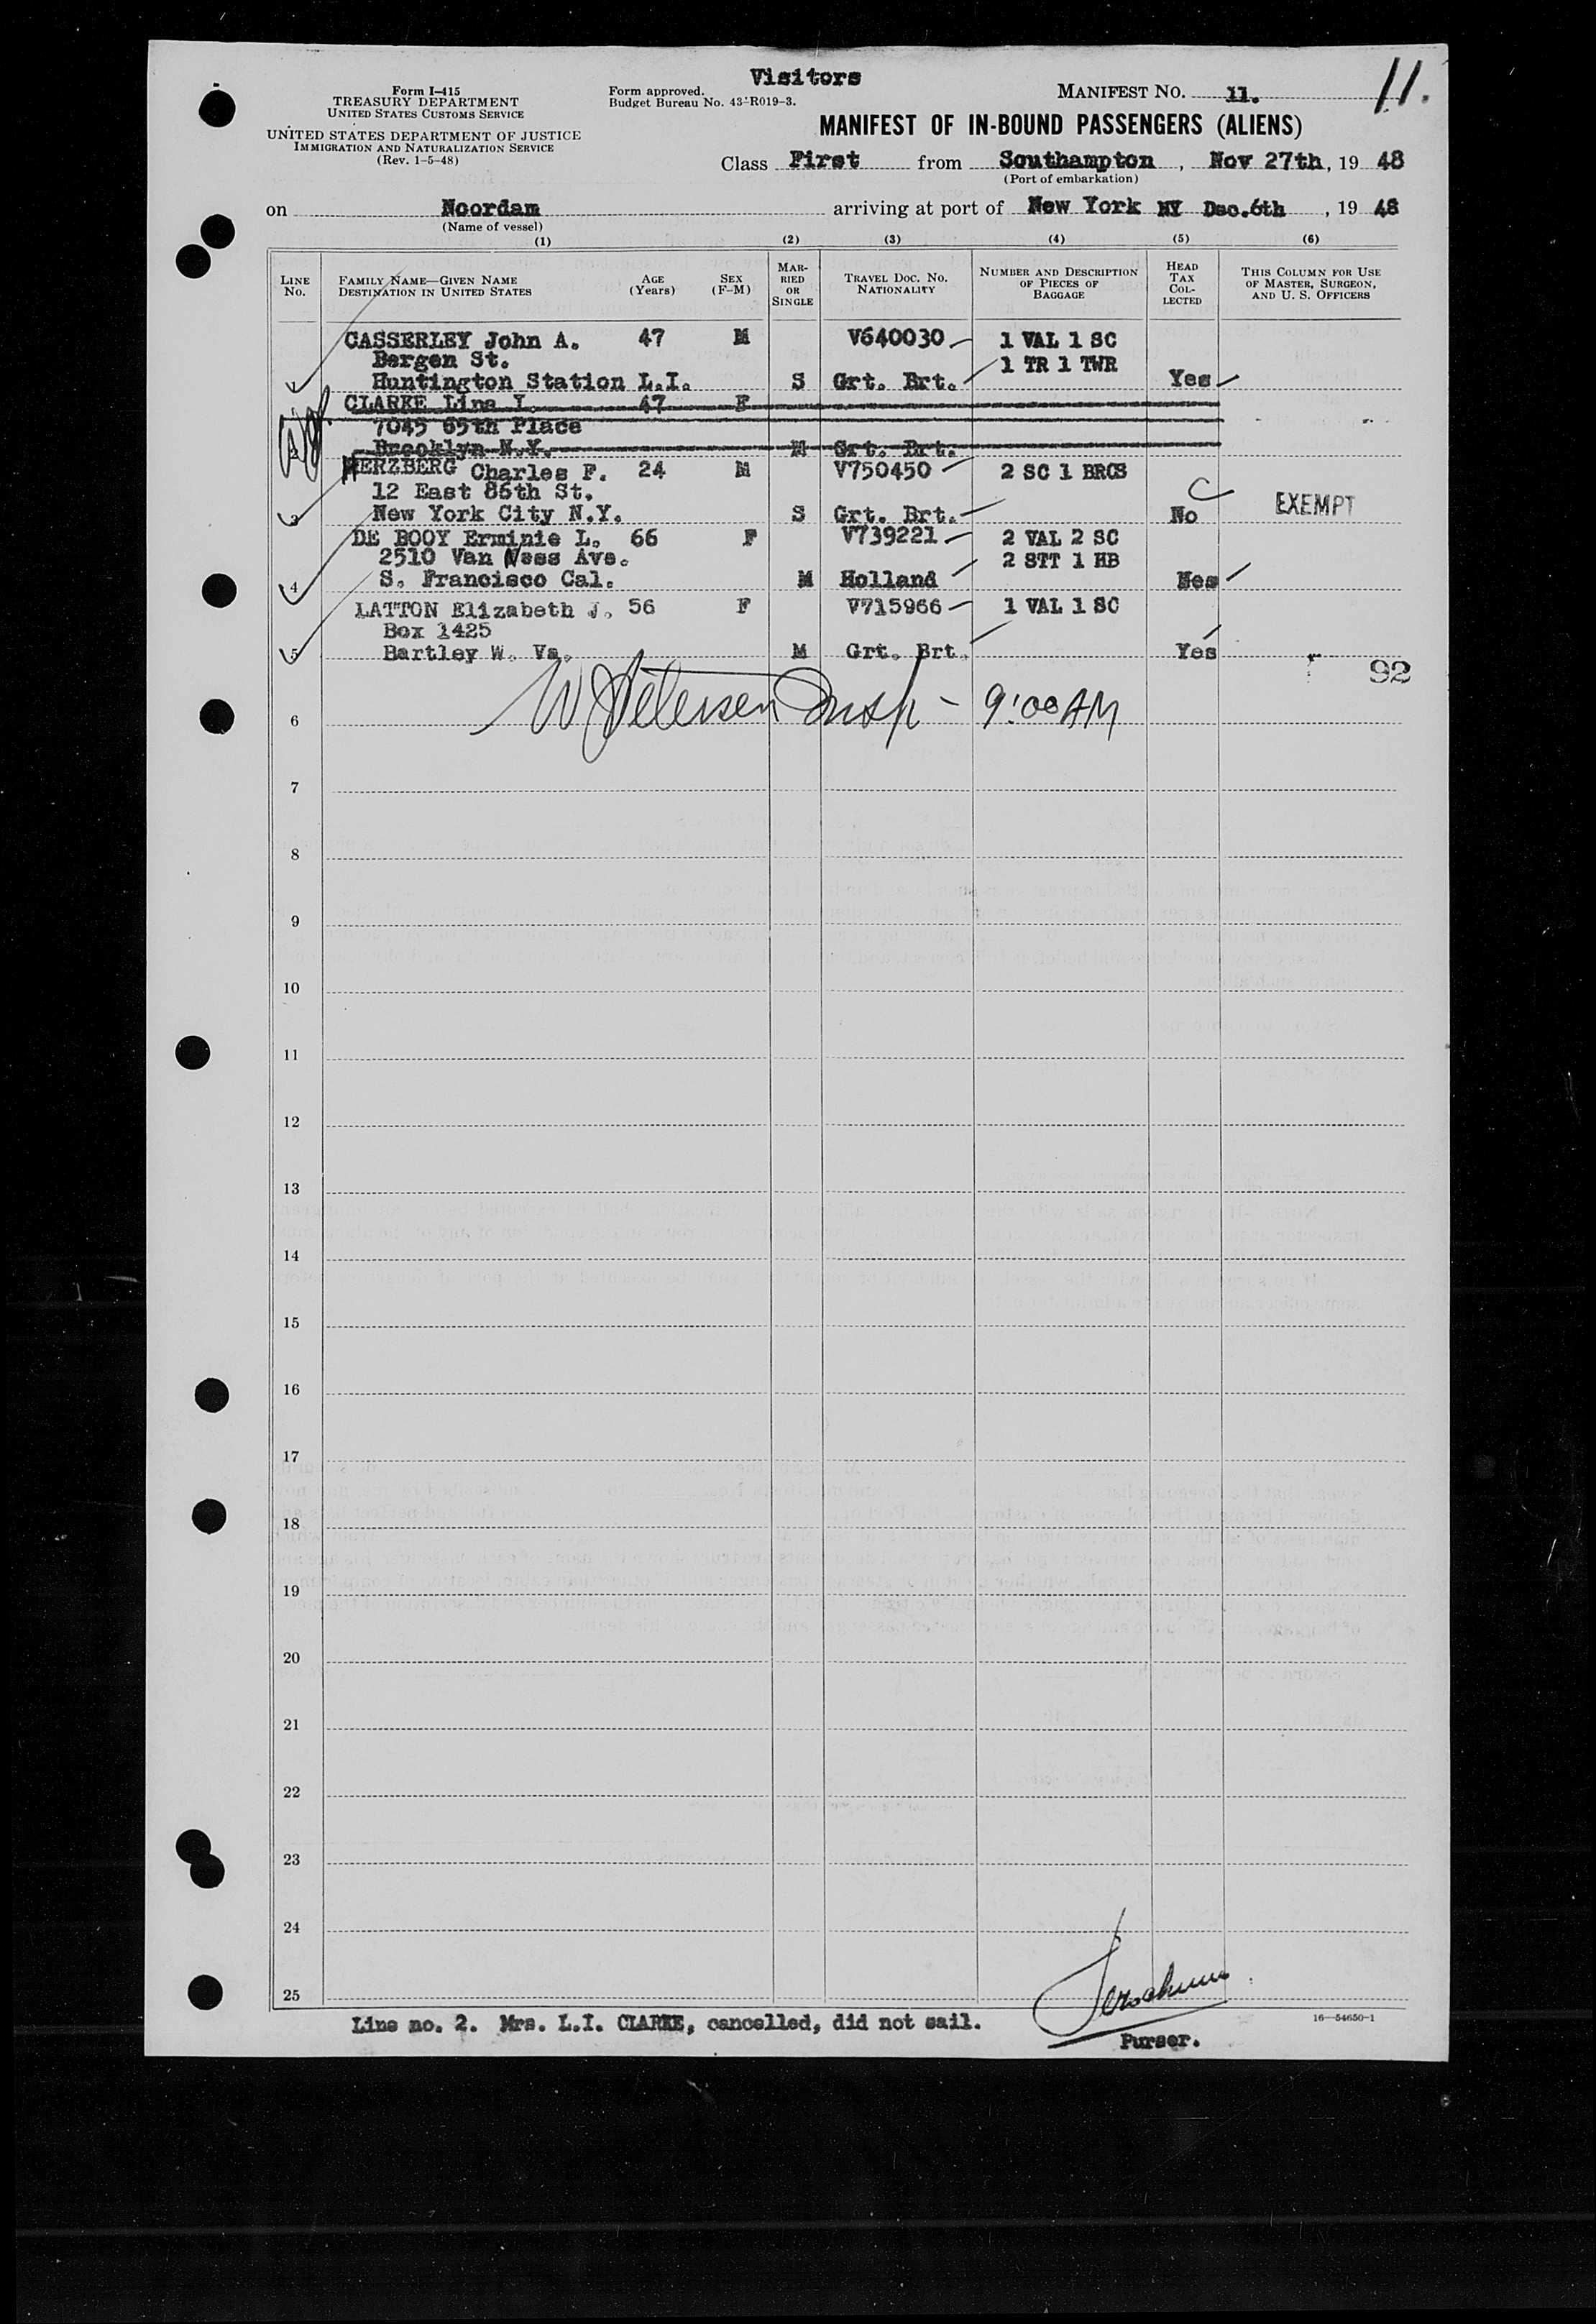 Visitors
11.
Form I-415
TREASURY DEPARTMENT
UNITED STATES CUSTOMS SERVICE
UNITED STATES DEPARTMENT OF JUSTICE
IMMIGRATION AND NATURALIZATION SERVICE
(Rev. 1-5-48)
Form approved.
Budget Bureau No. 43-R019-3.
MANIFEST NO. 11.
MANIFEST OF IN-BOUND PASSENGERS (ALIENS)
Class First from Southampton, Nov 27th, 19 48
(Port of embarkation)
on Noordam arriving at port of New York NY Dec. 6th, 19 48
(Name of vessel)
(1) (2) (3) (4) (5) (6)
LINE No. FAMILY NAME—GIVEN NAME DESTINATION IN UNITED STATES AGE (Years) SEX (F-M) MARRIED OR SINGLE TRAVEL DOC. NO. NATIONALITY NUMBER AND DESCRIPTION OF PIECES OF BAGGAGE HEAD TAX COLLECTED THIS COLUMN FOR USE OF MASTER, SURGEON, AND U. S. OFFICERS
CASSERLEY John A. 47 M V640030 1 VAL 1 SC
Bergen St. 1 TR 1 TWR
Huntington Station L.I. S Grt. Brt. Yes
CLARKE Lina I. 47 F
7045 65th Place
2 Brooklyn N.Y. M Grt. Brt.
HERZBERG Charles F. 24 M V750450 2 SC 1 BRCS
12 East 86th St. C EXEMPT
3 New York City N.Y. S Grt. Brt. No
DE BOOY Erminie L. 66 F V739221 2 VAL 2 SC
2510 Van Ness Ave. 2 STT 1 HB
4 S. Francisco Cal. M Holland Nes
LATTON Elizabeth J. 56 F V715966 1 VAL 1 SC
Box 1425
5 Bartley W. Va. M Grt. Brt. Yes
92
W Petersen Insp - 9:00 AM
6
7
8
9
10
11
12
13
14
15
16
17
18
19
20
21
22
23
24
25
Line no. 2. Mrs. L.I. CLARKE, cancelled, did not sail.
16—54650-1
Purser.